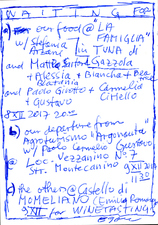 WAITING FOR
a) our food @ "LA
FAMIGLIA"
w/ Stefania
in TUNA di
and Matteo Gazzola
+ Alessia + Bianca + Bea
and Paolo Girotto + Carmelo
+ Gustavo Cimello
8 XII 2017 20
b) our departure from
Agroturismo "Argonauta"
w/ Paolo Carmelo Gustavo
@ Loc. Vezzanino N° 7
Str. Montecanino 9 XII 2017
11 30
c) the others @ Castello di
MOMELIANO (Emilia Romagna)
9 XII for WINETASTING